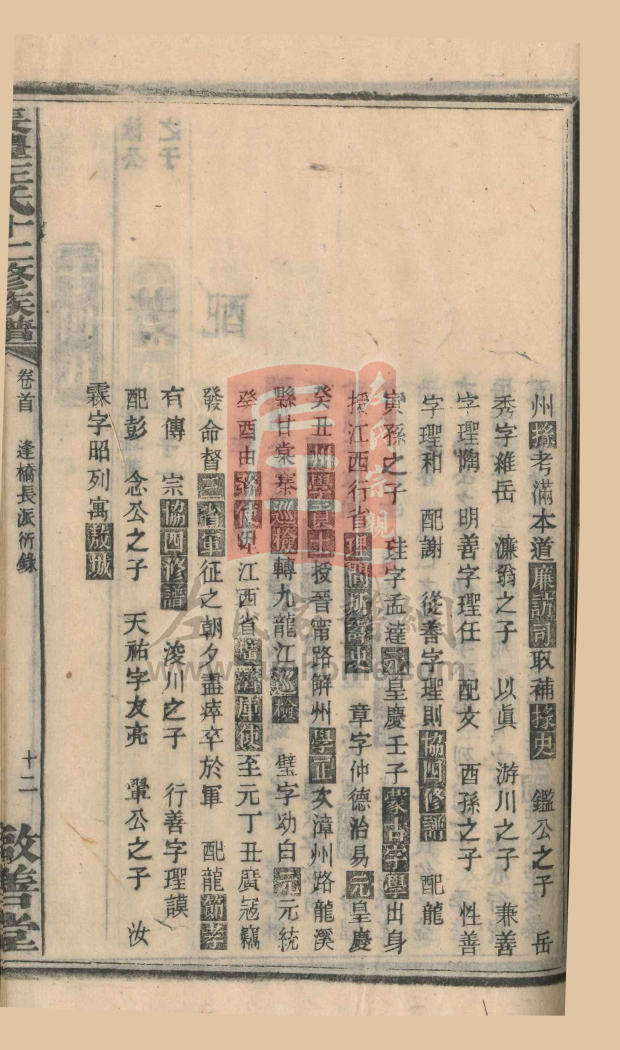 州掾考滿本道廉訪司取補掾史 鑑公之子 岳
秀字維岳 濂翁之子 以眞 游川之子 兼善
字理陶 明善字理任 配文 酉孫之子 性善
字理和 配謝 從善字理則協四修譜 配龍
寅孫之子 珪字孟達元皇慶壬子蒙古字學出身
授江西行省理問所令史 章字仲德治易元皇慶
癸丑州學貢士授晉甯路解州學正次漳州路龍溪
縣甘棠寨巡檢轉九龍江巡檢 璧字幼白元元統
癸酉由 江西省 庫使至元丁丑廣寇竊
發命督三省軍征之朝夕盡瘁卒於軍 配龍節孝
有傳 宗協四修譜 浚川之子 行善字理謨
配彭 念公之子 天祐字友亮 鞏公之子 汝
霖字昭列寓敖城
長豐王氏十二修族譜
卷首 逢橋長派衍錄
十二
敦善堂